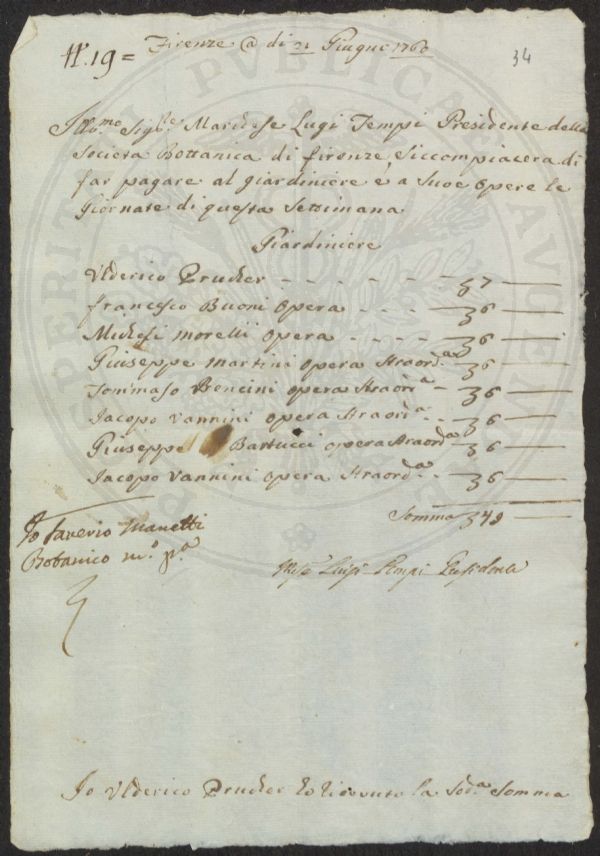 N.19 = Firenze @ di 21 Giugno 1760
34
Illmo. Sigre. Marchese Luigi Tempi Presidente della
Societa Bottanica di firenze, Siccompiacera di
far pagare al giardiniere e, a Sue Opere le
Giornate di questa Settimana
Giardiniere
Ulderico Prucher - - - - - ʒ 7 —
francesco Buoni Opera - - - ʒ 6 —
Michesi morelli opera - - - - ʒ 6 —
Giuseppe martini opera straorda. ʒ 6 —
Tommaso Bencini opera straorа. - ʒ 6 —
Jacopo vannini opera straorda. - ʒ 6 —
Giuseppe Bartucci opera straorda. ʒ 6 —
Jacopo vannini opera straorda. - - ʒ 6 —
Somma ʒ 49 —
Io Saverio Manetti
Botanico mo. pa.
Luigi Tempi Presidente
Io Ulderico Prucher ho ricevuto la Soda. Somma
PUBLICAE
PROSPERITATI
AUGENDAE